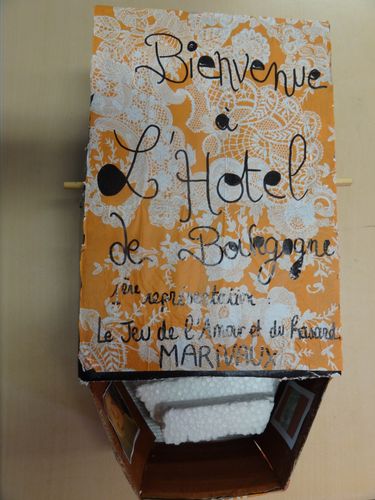 Bienvenue
à
L'Hotel
de Bourgogne
1ère représentation :
Le Jeu de l'Amour et du hasard
MARIVAUX